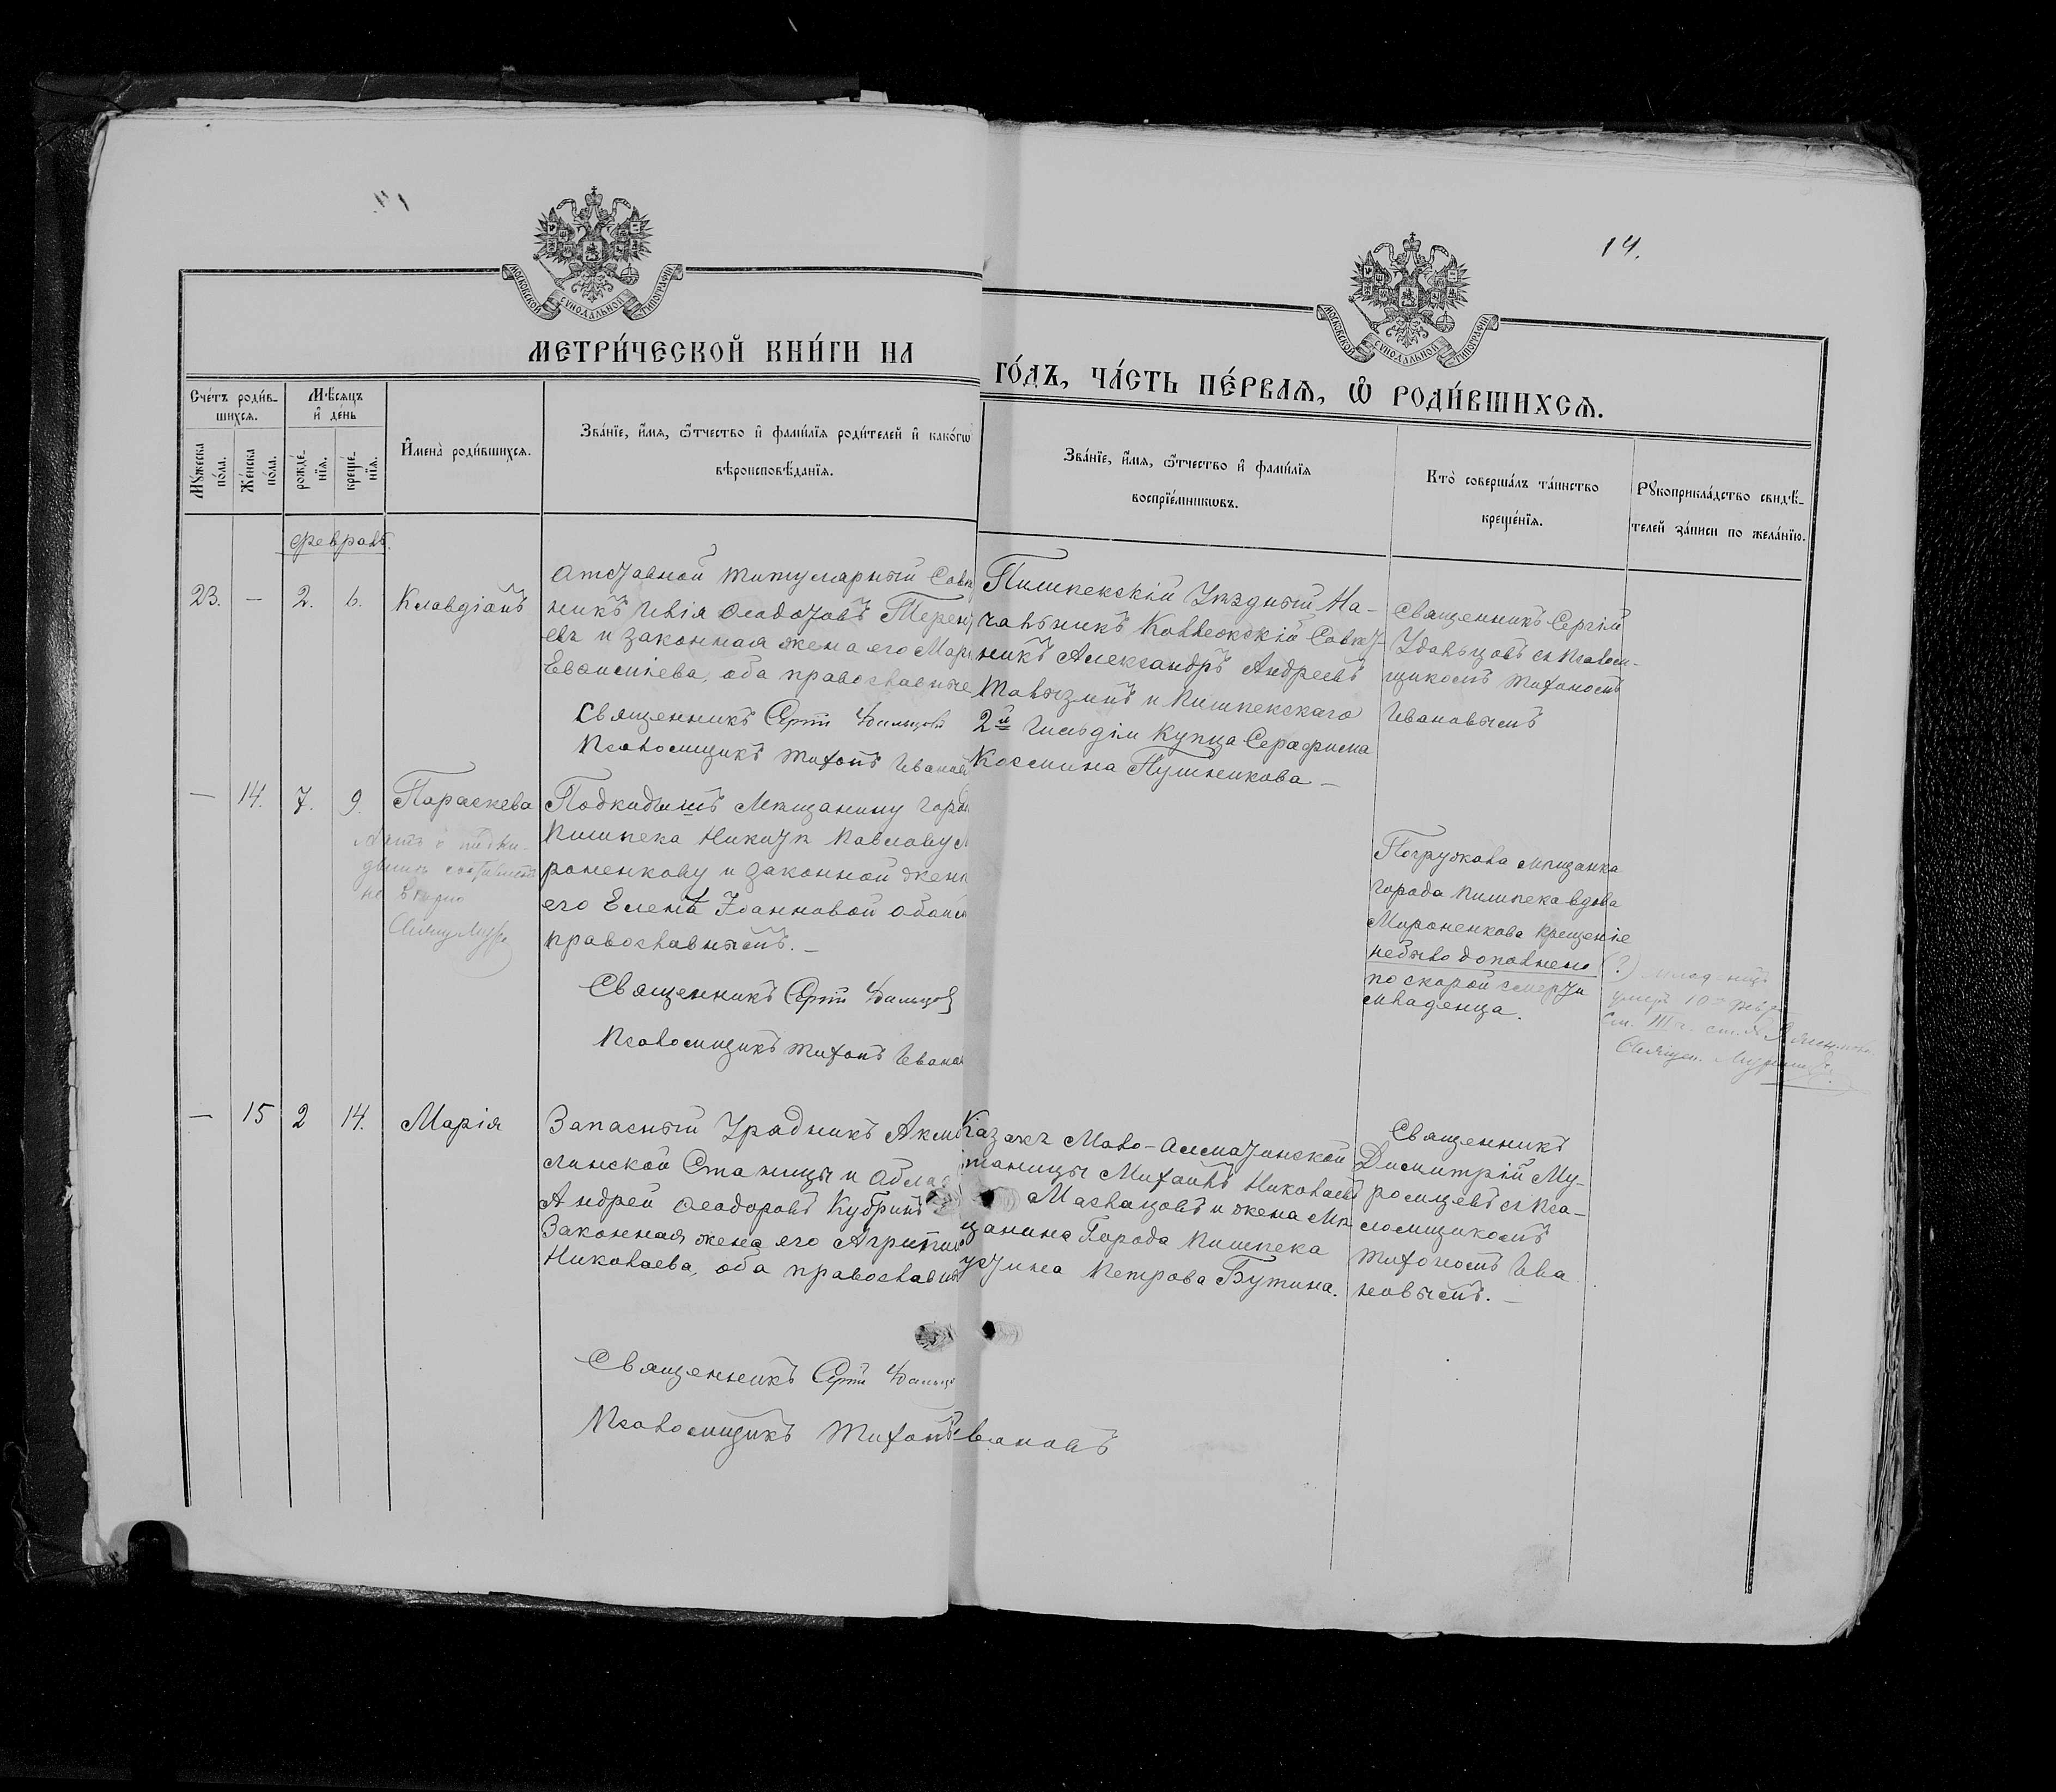 14.
МОСКОВСКОЙ СѴНОДАЛЬНОЙ ТИПОГРАФІИ
МОСКОВСКОЙ СѴНОДАЛЬНОЙ ТИПОГРАФІИ
МЕТРИ́ЧЕСКОЙ КНИ́ГИ НА
ГО́ДЪ, ЧА́СТЬ ПЕ́РВАѦ, Ѡ҆ РОДИ́ВШИХСѦ.
Сче́тъ роди́в-
шихсѧ.
Мꙋжеска по́ла.
Же́нска по́ла.
Мѣ́сѧцъ
и҆ де́нь
рожде́-
нїѧ.
креще-
нїѧ.
И҆мена̀ роди́вшихсѧ.
Зва́нїе, и҆́мѧ, ѻ҆́тчество и҆ фамиі́лїѧ роди́телей и҆ како́гѡ
вѣроисповѣ́данїѧ.
Зва́нїе, и҆́мѧ, ѻ҆́тчество и҆ фами́лїѧ
воспрїе́мникѡвъ.
Кто̀ соверша́лъ та́инство
креще́нїѧ.
Рꙋкоприкла́дство свидѣ́-
телей за́писи по жела́нїю.
февраль.
23. — 2. 6. Клавдіанъ
Атставной титулярный Совѣт
никъ Илія Ѳеодотовъ Терент
евъ и законная жена его Мари
Евсигніева, оба православные
Священникъ Сергій Удальцовъ
Псаломщикъ Тихонъ Ивановъ
Пишпекскій Уѣздный На-
чальникъ Коллежскій Совѣт-
никъ Александръ Андреевъ
Талызинъ и Пишпекскаго
2й Гильдіи Купца Серафима
Космина Пушникова —
Священникъ Сергій
Удальцовъ съ Псалом-
щикомъ Тихономъ
Ивановымъ
— 14. 7. 9. Параскева
Подкидышъ Мѣщанину горо
Пишпека Никитѣ Павлову М
роненкову и законной женѣ
его Еленѣ Іоанновой обоим
православнымъ. —
Священникъ Сергій Удальцовъ
Псаломщикъ Тихонъ Иванов
Погружала мѣщанка
города Пишпека вдова
Мироненкова Крещеніе
небыло дополнено
по скорой смерти
младенца.
(?) младенецъ
умеръ 10го февр
— 15 2 14. Марія
Запасный Урядникъ Акмо
линской Станицы и Облас
Андрей Ѳеодоровъ Кубринъ
Законная жена его Агрипин
Николаева, оба православны
Священникъ Сергій Удальцо
Псаломщикъ Тихонъ Ивановъ
Казакъ Мало-Алматинской
станицы Михаилъ Николаевъ
Маслацовъ и жена Мѣ
щанина Города Пишпека
устина Петрова Бутина.
Священникъ
Димитрій Му-
росицевъ съ Пса-
ломщикомъ
Тихономъ Ива
новымъ. —